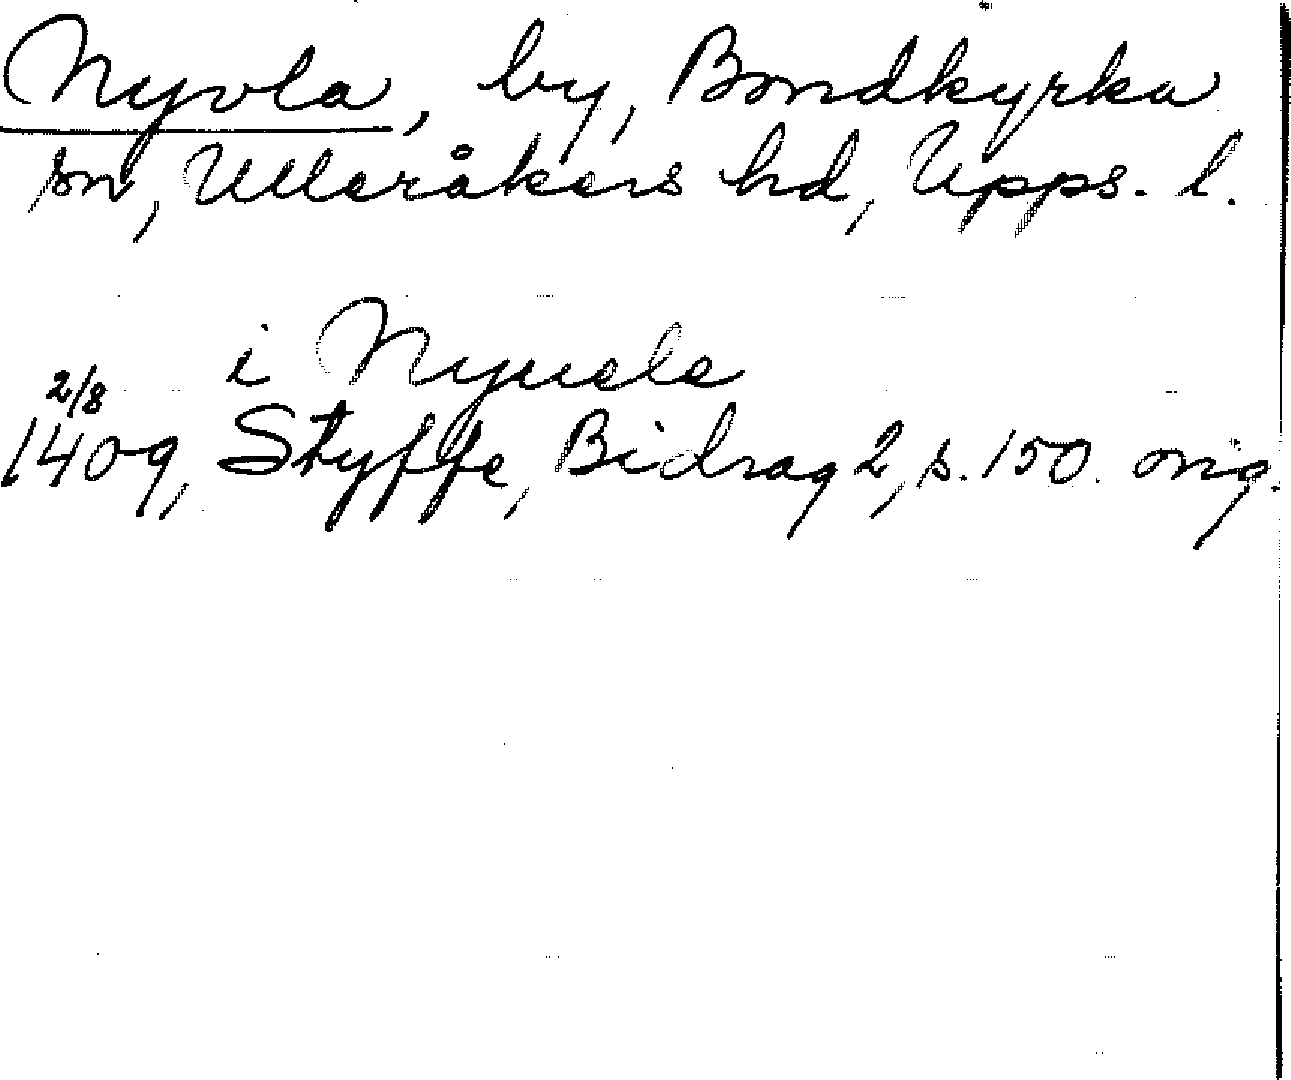 Nyvla, by, Bondkyrka
sn, Ulleråkers hd, Upps. l.
i Nyuele
2/8
1409, Styffe, Bidrag 2, s. 150. orig.